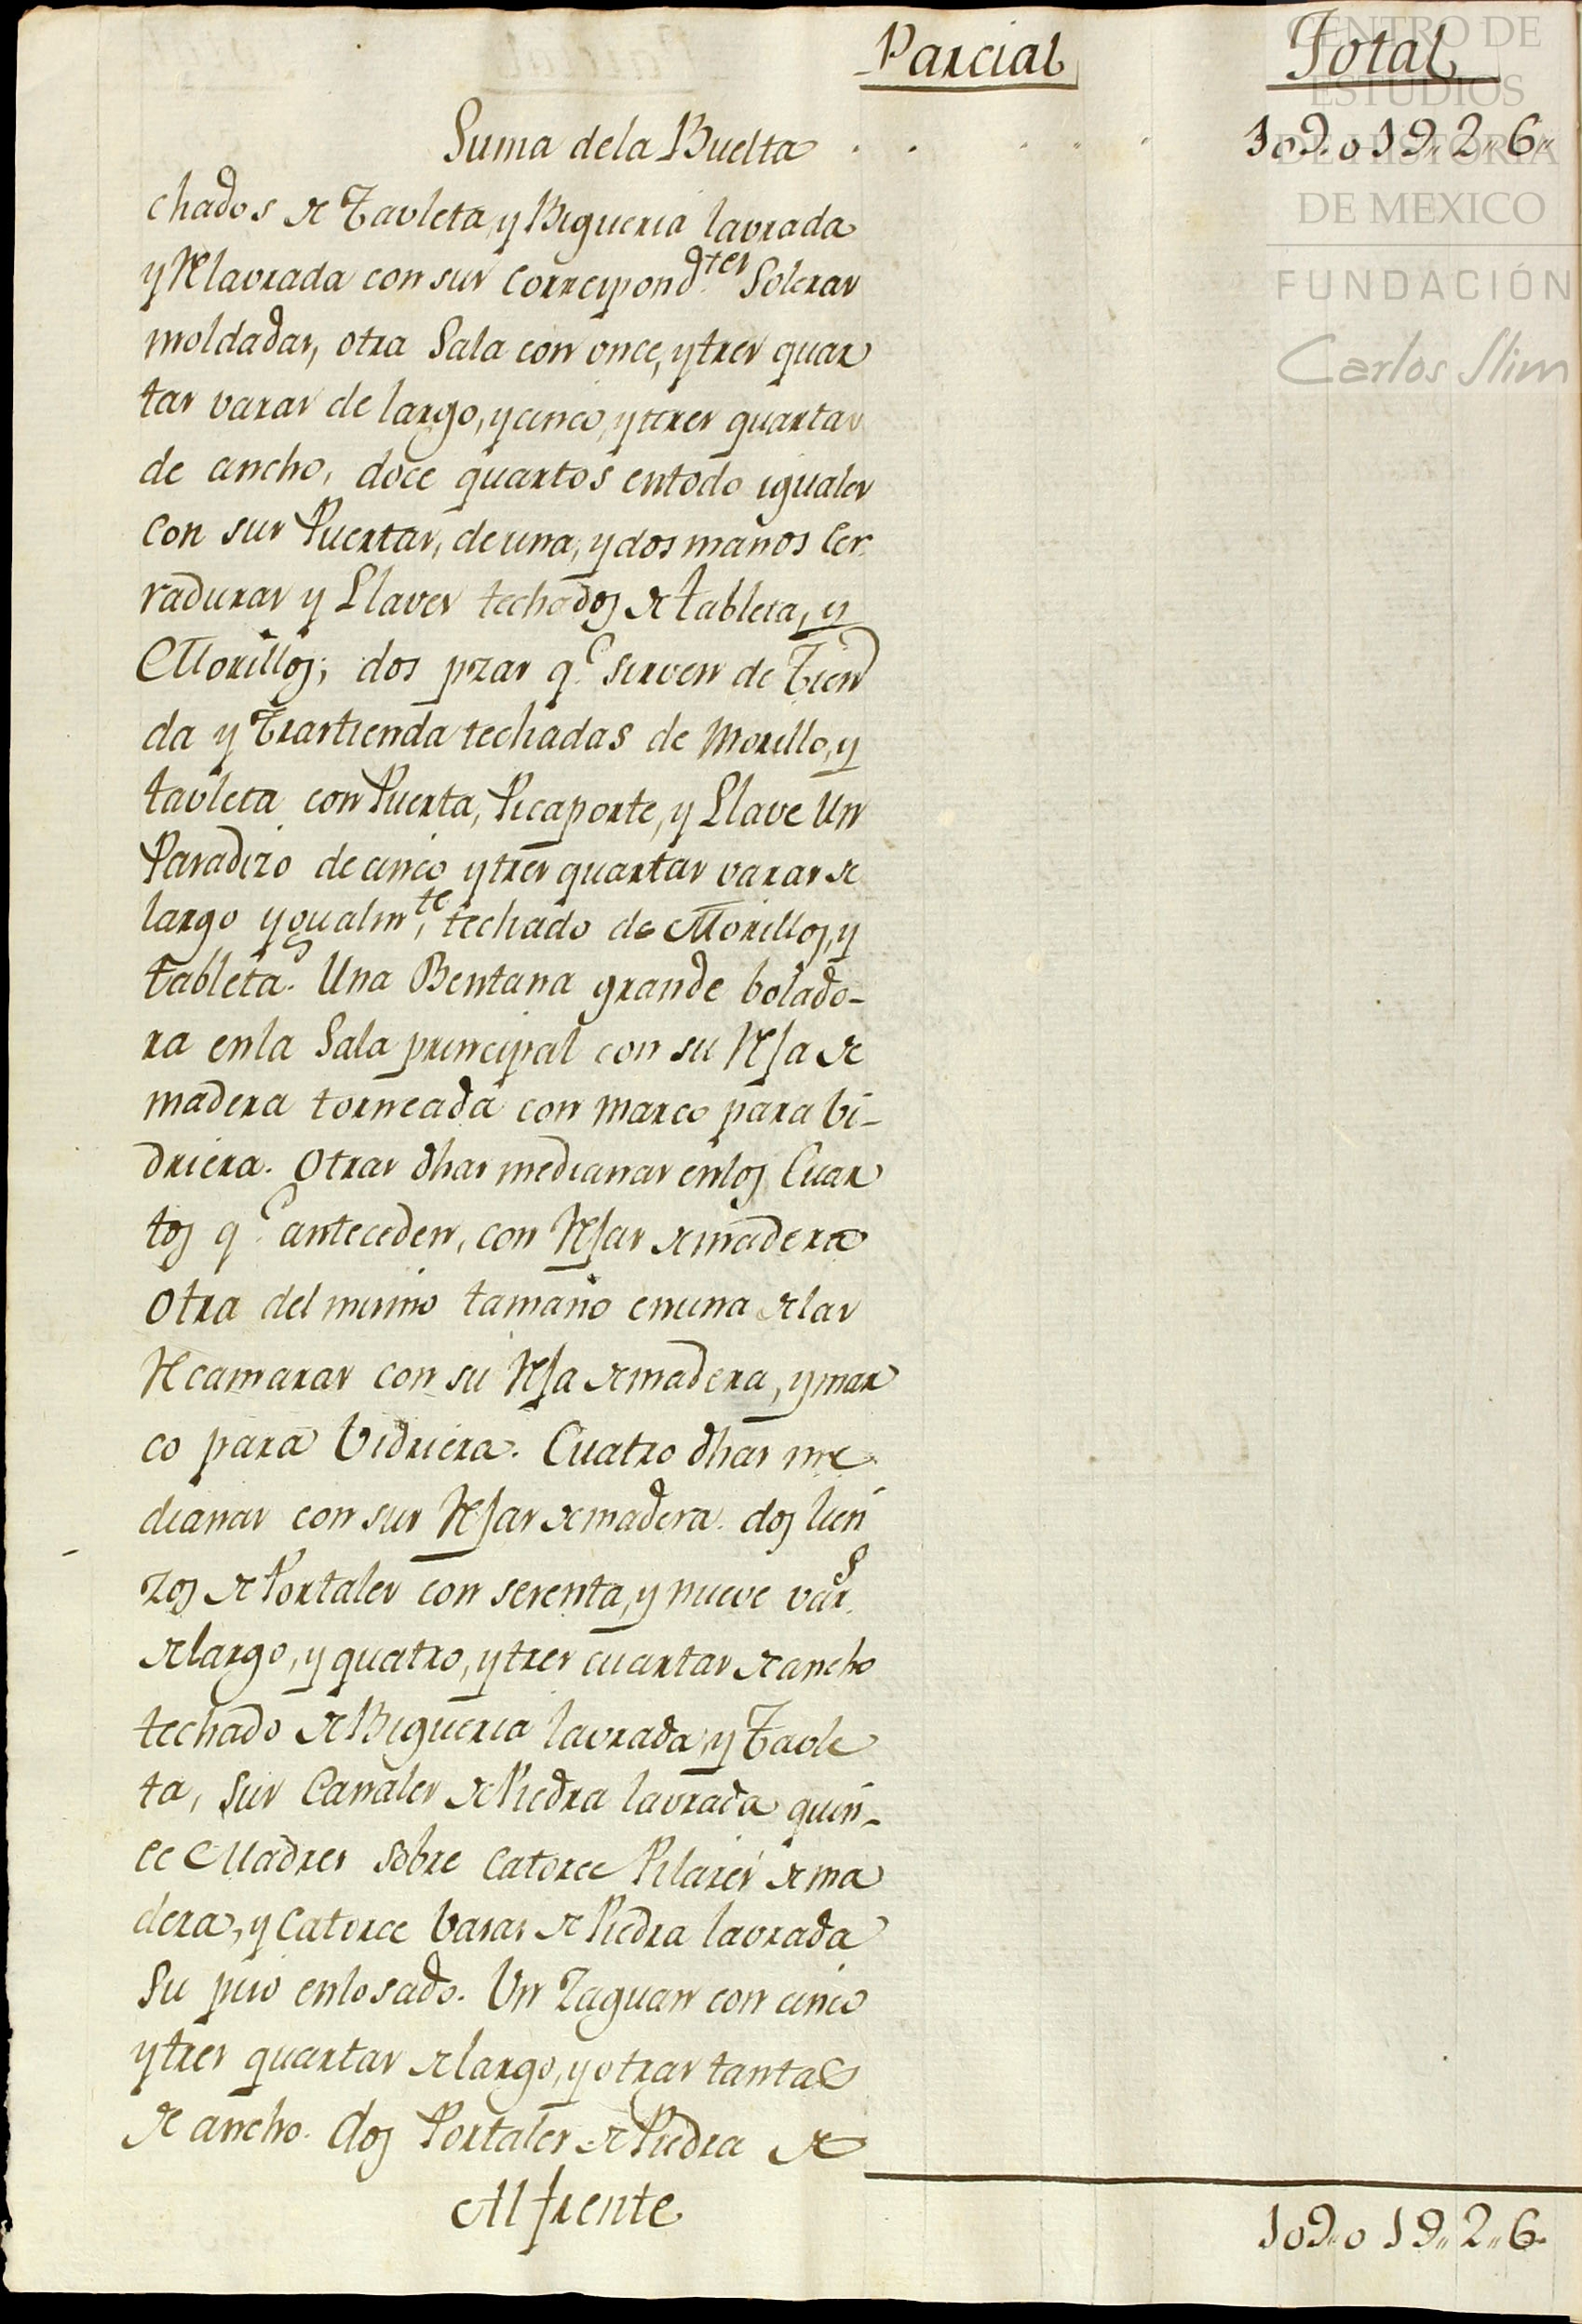 Parcial Total
Suma dela Buelta . . . . . 109.019,,2,,6,,
chados de Tavleta, y Bigueria lavrada
y Relavrada con sus correspond.tes Soleras
moldadas, otra Sala con once, y tres quar
tas varas de largo, y cinco, y tres quartas
de ancho, doce quartos entodo iguales
con sus Puertas, de una, y dos manos Cer
raduras y Llaves techados de tableta, y
Morillos; dos pzas q.e sirven de Tien
da y Trastienda techadas de Morillo, y
tavleta con Puerta, Picaporte, y Llave Un
Pasadizo de cinco y tres quartas varas de
largo ygualm.te techado de Morillos, y
tableta. Una Bentana grande bolado-
ra enla Sala principal con su Rja de
madera torneada con marco para bi-
driera. Otras dhas medianas enlos Cuar
tos q.e anteceden, con Rjas de madera
Otra del mismo tamaño enuna de las
Recamaras con su Rja de madera, y mar
co para Vidriera. Cuatro dhas me
dianas con sus Rjas de madera. dos lien
zos de Portales con sesenta, y nueve vars.
de largo, y quatro, y tres cuartas de ancho
techado de Bigueria lavrada, y Tavle
ta, sus Canales de Piedra lavrada quin-
ce Madres sobre catorce Pilares de ma
dera, y catorce basas de Piedra lavrada
Su piso enlosado. Un Zaguan con cinco
y tres quartas de largo, y otras tantas
de ancho. dos Portales de Piedra de
Al frente 109.,019,,2,,6.
CENTRO DE
ESTUDIOS
DE HISTORIA
DE MEXICO
FUNDACIÓN
Carlos Slim